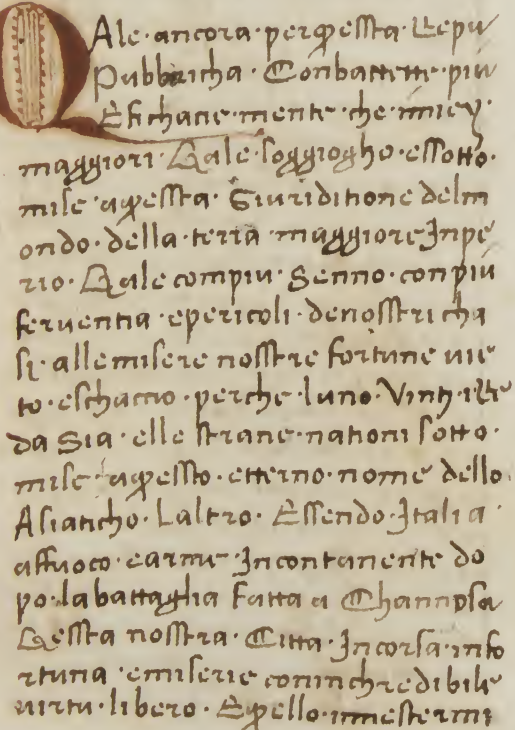 Quale·ancora·perquessta·Repu
Pubbricha·Conbattette·piu
Efichace·mente·che imiey·
maggiori·Quale·soggiogho·essotto·
mise·aquessta·Giuriditione delm
ondo·della·terra·maggiore Inpe
rio·Quale compiu·Senno·conpiu
feruentia·epericoli·denosstri cha
si·allemisere nosstre fortune uie
to·eschaccio·perche·luno·Vinti·ille
da Sia·elle strane·nationi sotto·
mise·aquessto·etterno·nome dello
Asiaticho·Laltro·Essendo·Italia·
affuoco·earme·Incontanente do
po·labattaglia Fatta a Channosa
Quessta nosstra·Citta·Incorsa·info
rtuna·emiserie coninchredibile
uirtu·libero·Equello·innestermi